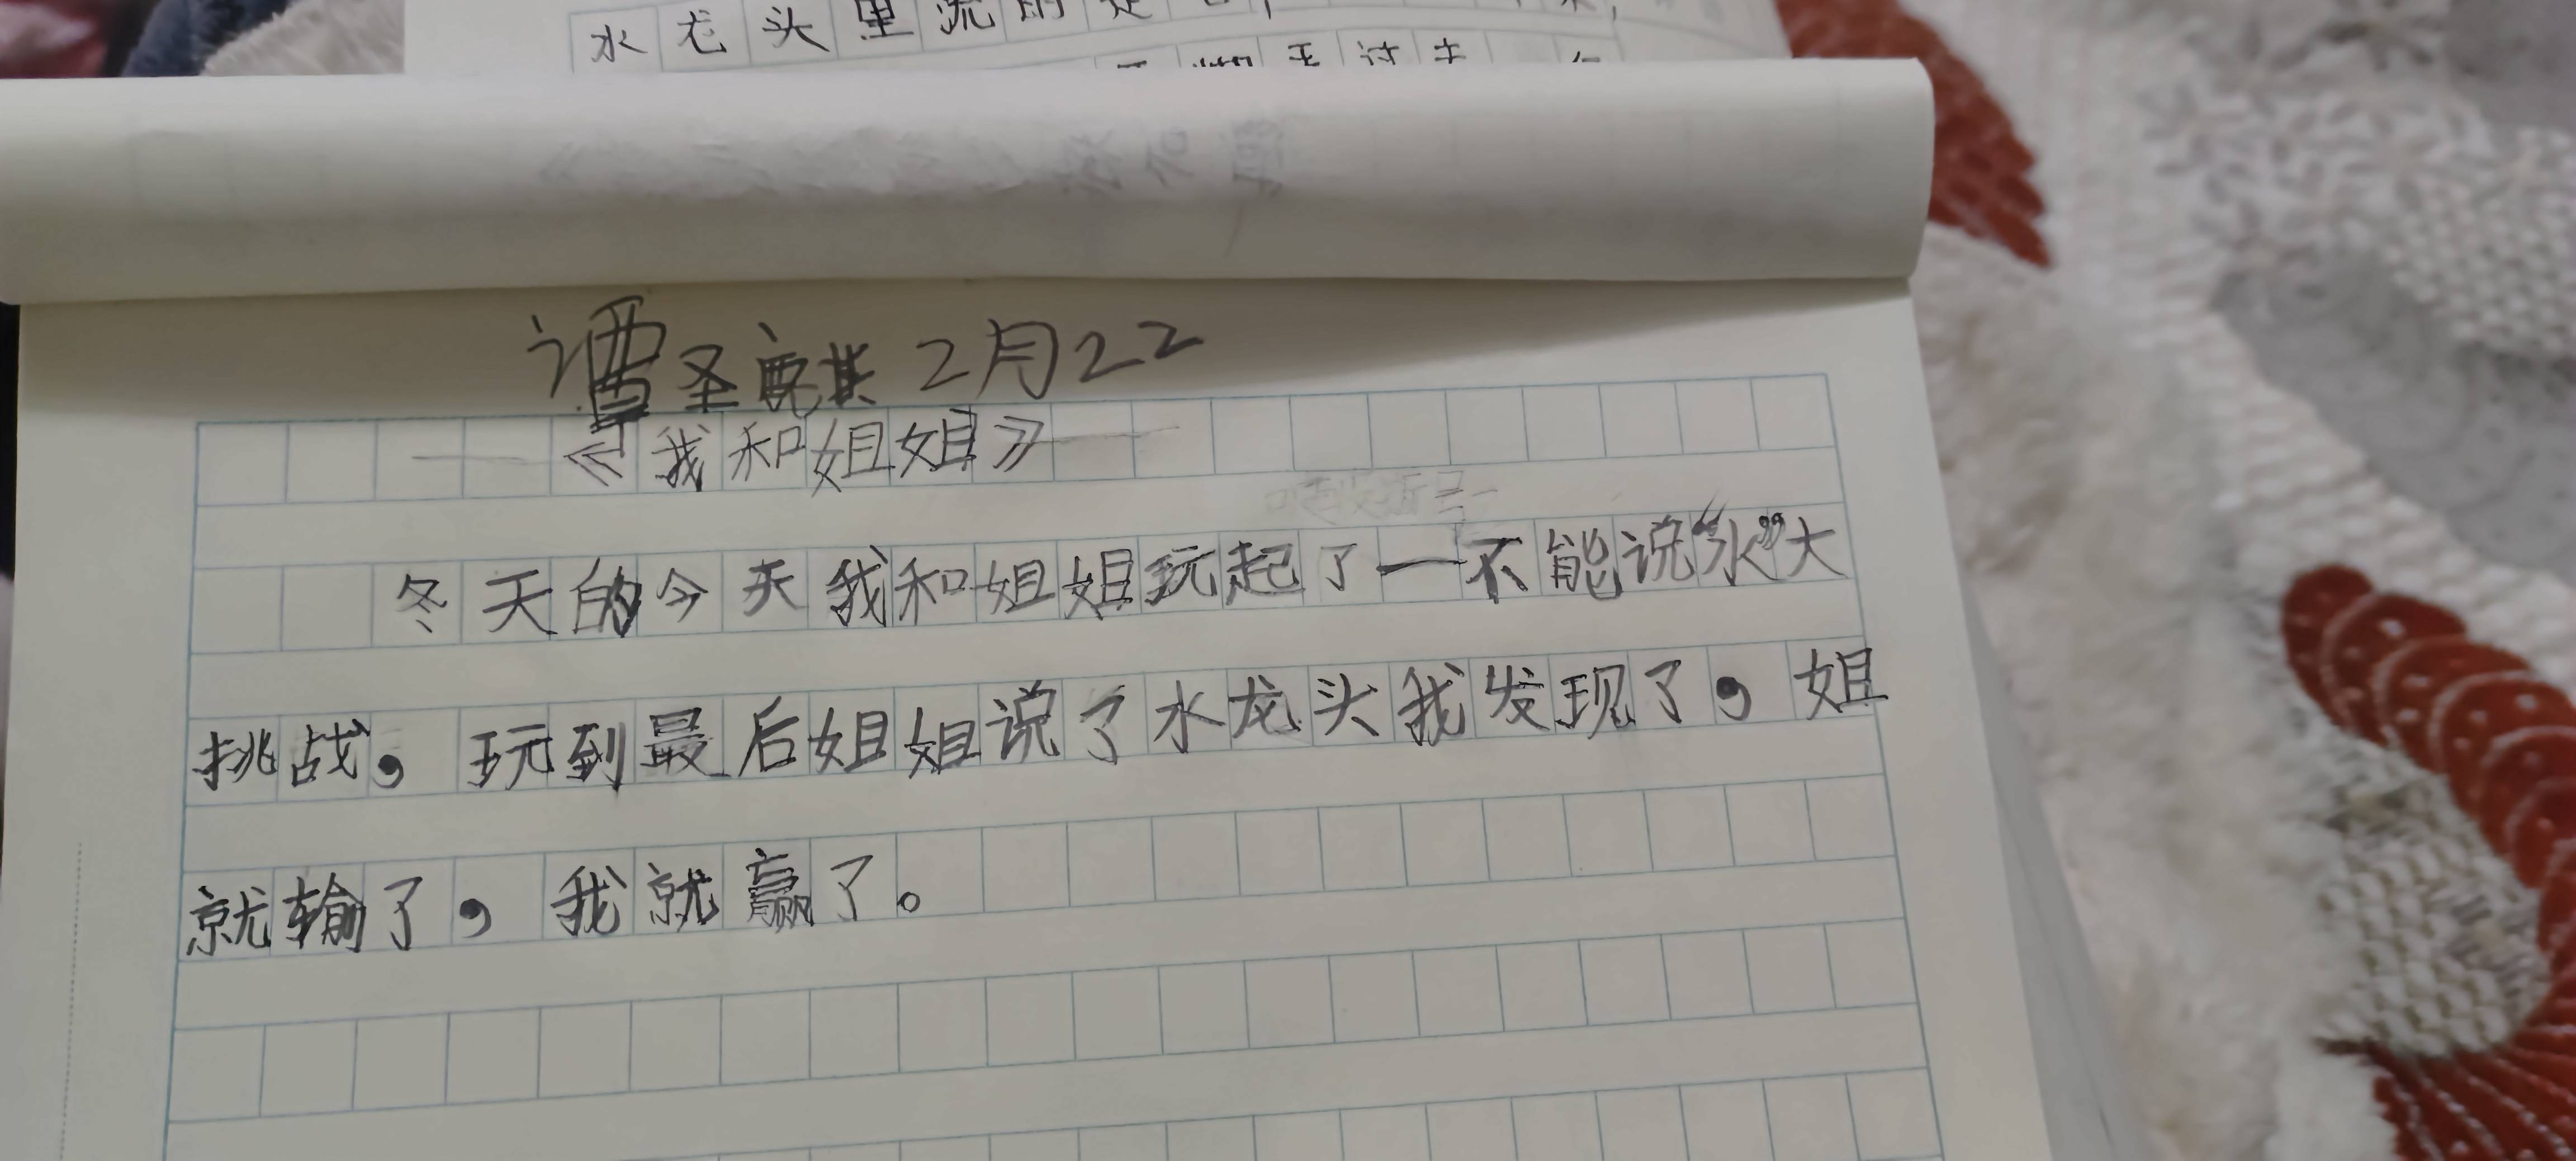 水龙头里流的是
谭圣 2月22
《我和姐姐》
冬天的今天我和姐姐玩起了一不能说“水”大
挑战，玩到最后姐姐说了水龙头我发现了，姐
就输了，我就赢了。